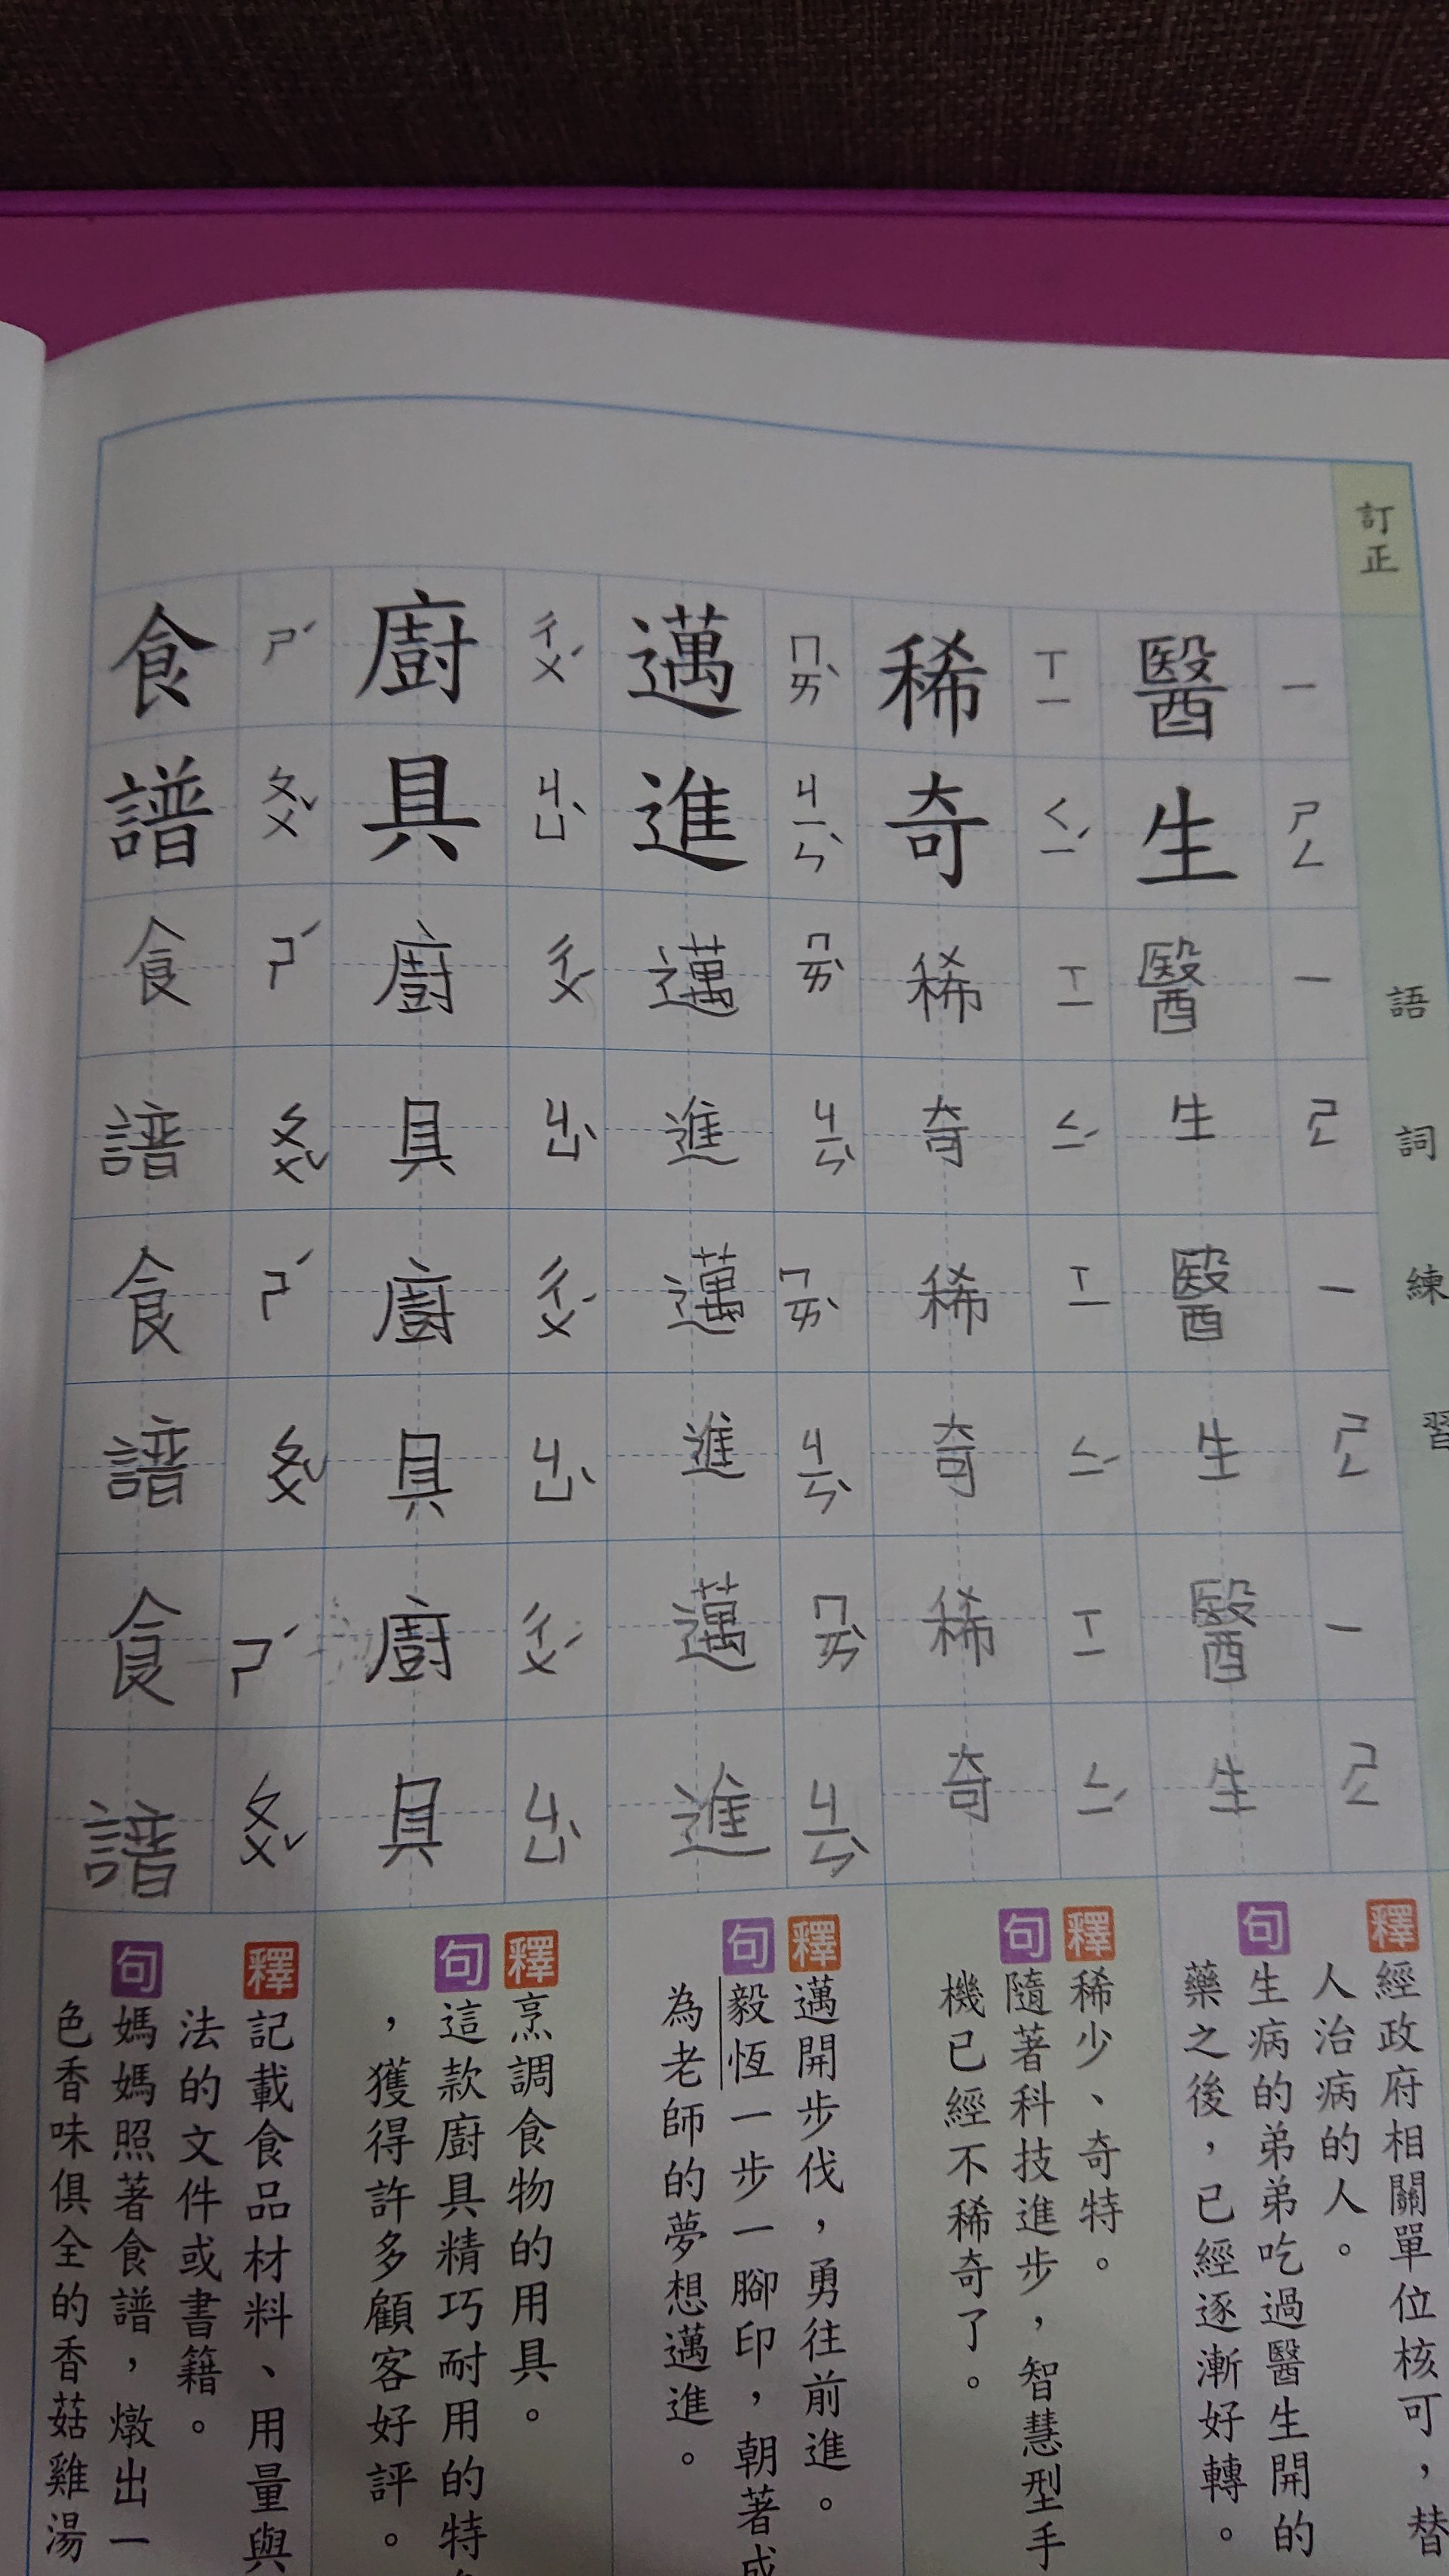 訂正
語詞練習
醫生
ㄧ
ㄕㄥ
醫生
ㄧ
ㄕㄥ
醫生
ㄧ
ㄕㄥ
醫生
ㄧ
ㄕㄥ
釋 經政府相關單位核可，替
人治病的人。
句 生病的弟弟吃過醫生開的
藥之後，已經逐漸好轉。
稀奇
ㄒㄧ
ㄑㄧˊ
稀奇
ㄒㄧ
ㄑㄧˊ
稀奇
ㄒㄧ
ㄑㄧˊ
稀奇
ㄒㄧ
ㄑㄧˊ
釋 稀少、奇特。
句 隨著科技進步，智慧型手
機已經不稀奇了。
邁進
ㄇㄞˋ
ㄐㄧㄣˋ
邁進
ㄇㄞˋ
ㄐㄧㄣˋ
邁進
ㄇㄞˋ
ㄐㄧㄣˋ
邁進
ㄇㄞˋ
ㄐㄧㄣˋ
釋 邁開步伐，勇往前進。
句 毅恆一步一腳印，朝著成
為老師的夢想邁進。
廚具
ㄔㄨˊ
ㄐㄩˋ
廚具
ㄔㄨˊ
ㄐㄩˋ
廚具
ㄔㄨˊ
ㄐㄩˋ
廚具
ㄔㄨˊ
ㄐㄩˋ
釋 烹調食物的用具。
句 這款廚具精巧耐用的特
，獲得許多顧客好評。
食譜
ㄕˊ
ㄆㄨˇ
食譜
ㄕˊ
ㄆㄨˇ
食譜
ㄕˊ
ㄆㄨˇ
食譜
ㄕˊ
ㄆㄨˇ
釋 記載食品材料、用量與
法的文件或書籍。
句 媽媽照著食譜，燉出一
色香味俱全的香菇雞湯